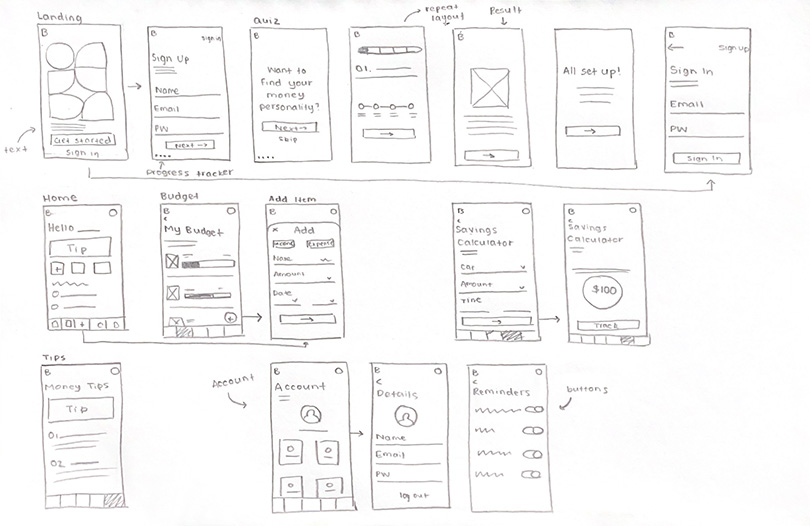 Landing
Quiz
repeat
layout
Result
B
Get started
Sign in
text
B
Sign in
Sign Up
Name
Email
PW
Next →
progress tracker
B
Want to
find your
money
personality?
Next →
Skip
B
01.
B
All set up!
Sign Up
Sign In
Email
PW
Sign In
Home
B
Hello
Tip
Budget
B
My Budget
Add Item
B
x Add
Income
Expense
Name
Amount
Date
B
Savings
Calculator
Car
Amount
Time
B
Savings
Calculator
$100
Track
Tips
B
Money Tips
Tip
01.
02.
Account
B
Account
B
Details
Name
Email
PW
log out
B
Reminders
buttons